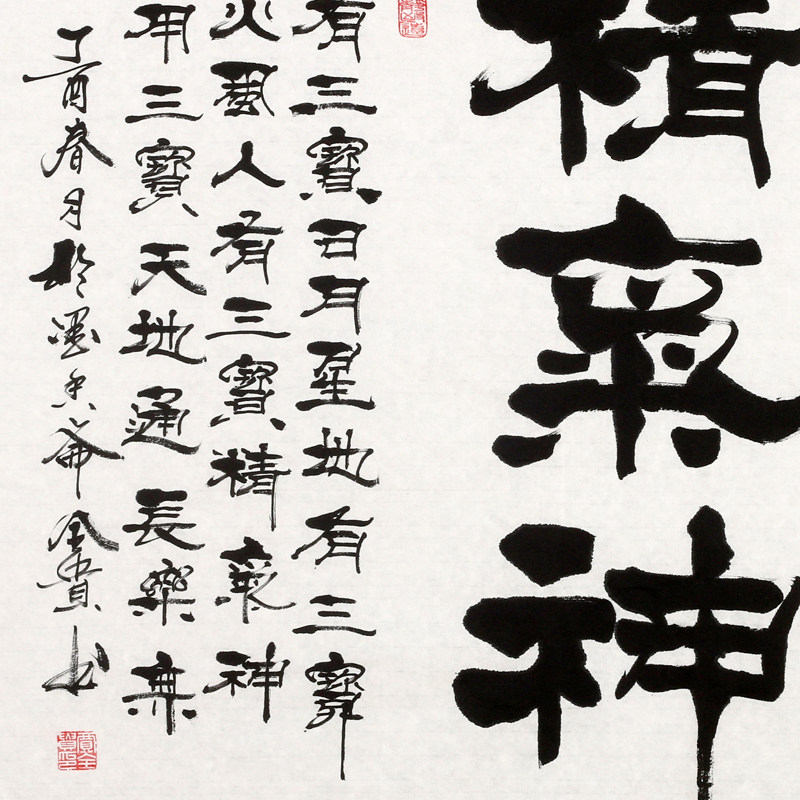 精氣神
有三寶日月星地有三寶
火風人有三寶精氣神
用三寶天地通長樂無
丁酉春月於墨香齋全貴书
賈全貴印